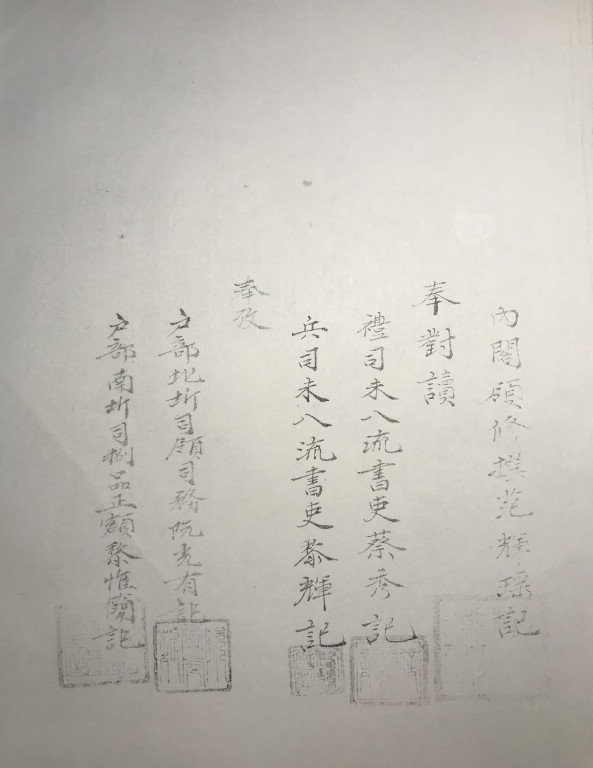 內閣領修撰范輝㻞記
奉對讀
禮司未入流書吏蔡秀記
兵司未入流書吏恭輝記
奉攷
户部北圻司領司務阮光有記
户部南圻司捌品正額黎惟簡記